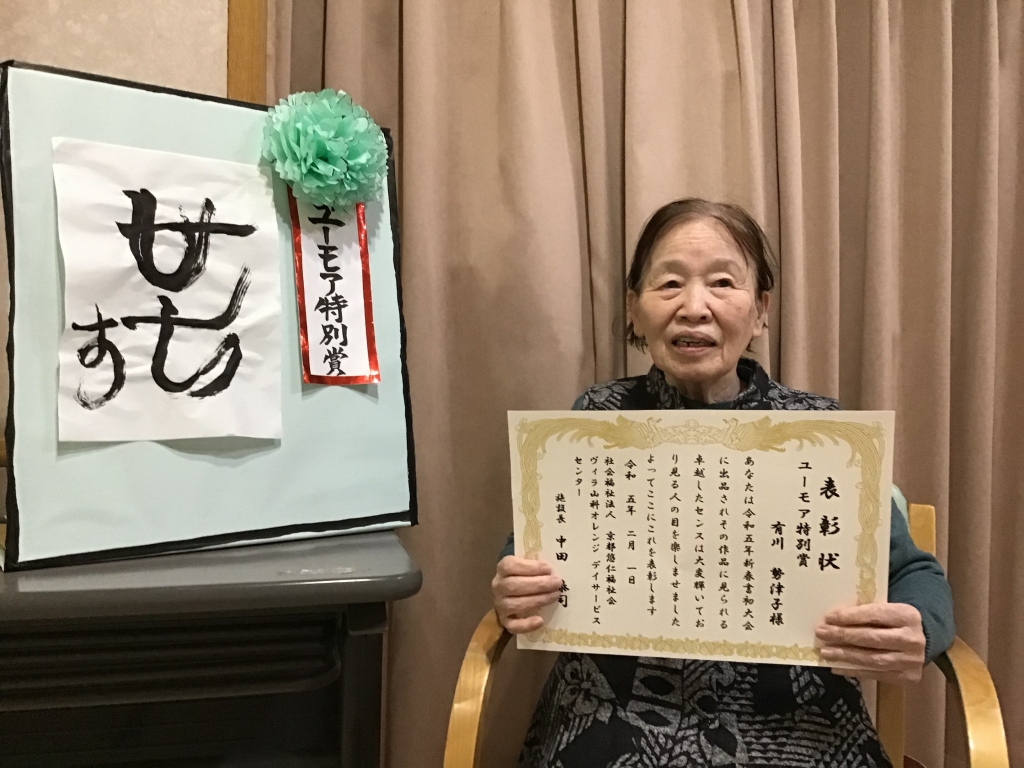 ユーモア特別賞
表彰状
ユーモア特別賞
有川 勢津子様
あなたは令和五年新春書初大会
に出品されその作品に見られる
卓越したセンスは大変輝いてお
り見る人の目を楽しませました
よってここにこれを表彰します
令和 五年 二月 一日
社会福祉法人 京都悠仁福祉会
ヴィラ山科オレンジ デイサービス
センター
施設長 中田